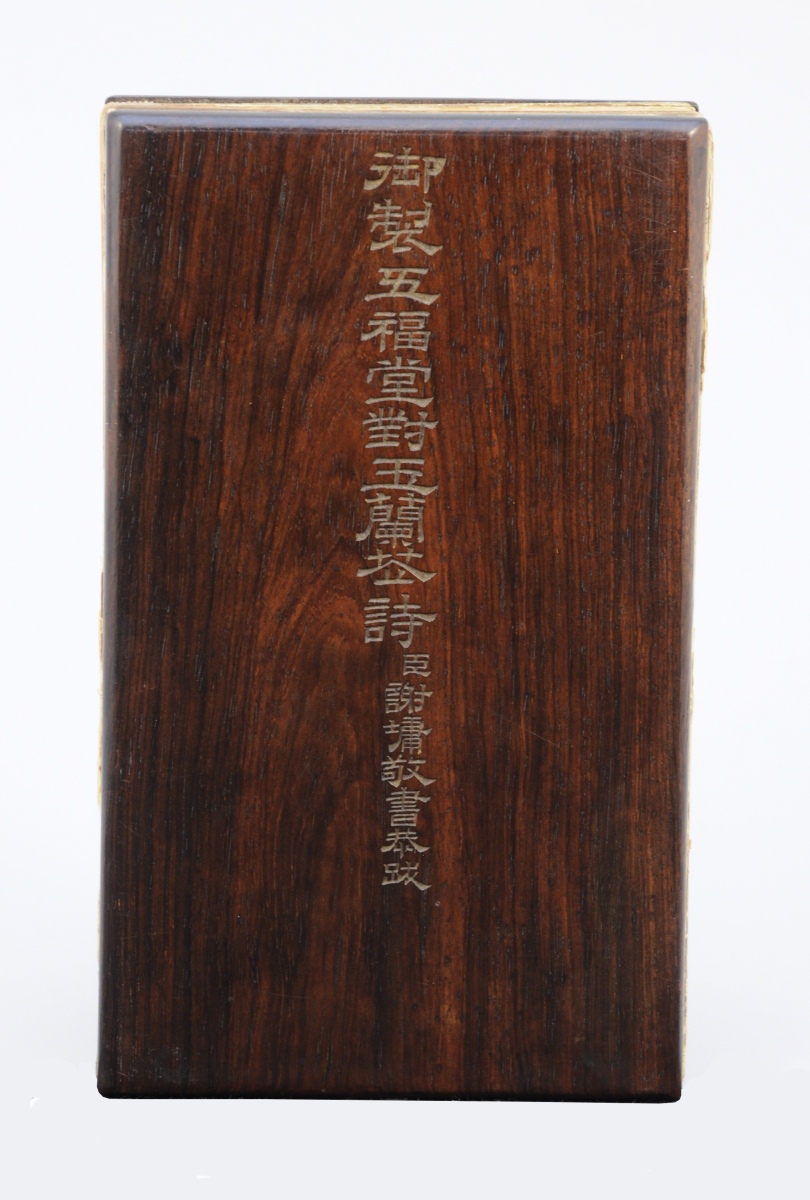 御製五福堂對玉蘭花詩臣謝墉敬書恭跋